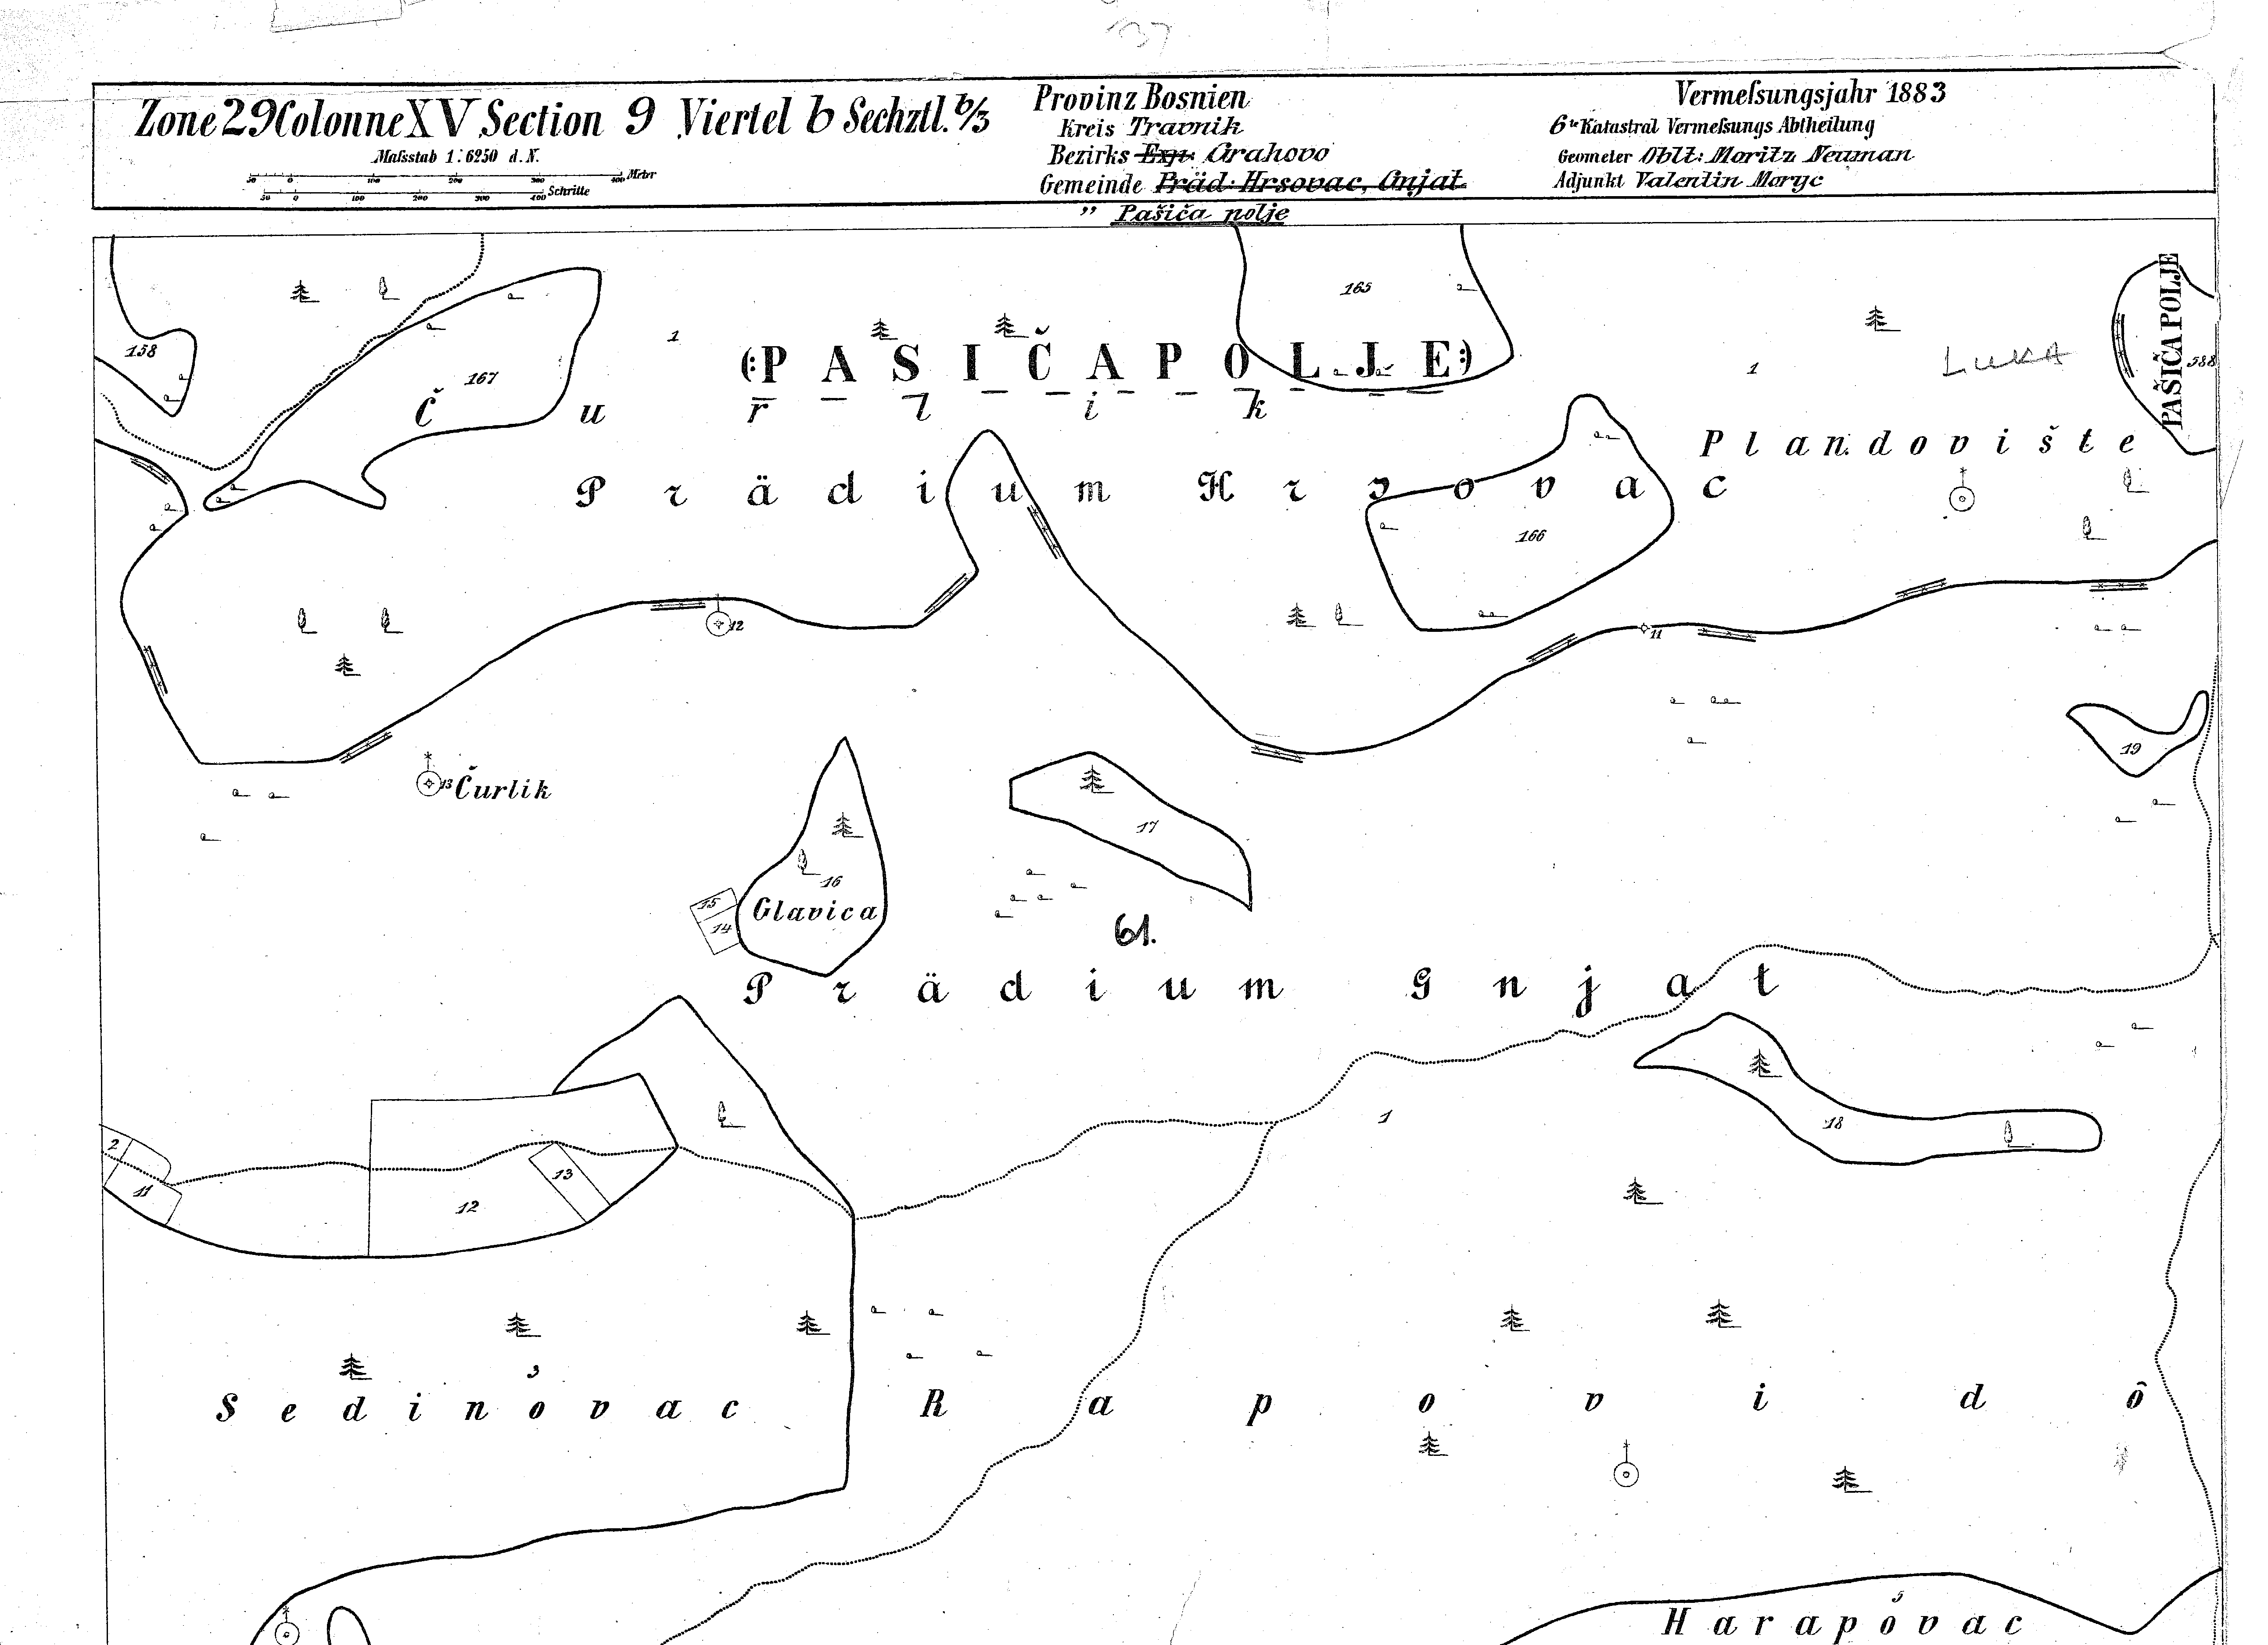 137
Zone 29 Colonne XV Section 9 Viertel b Sechztl. b/3
Maſsstab 1:6250 d. N.
50 0 100 200 300 400 Meter
50 0 100 200 300 400 Schritte
Provinz Bosnien
Kreis Travnik
Bezirks Exp: Grahovo
Gemeinde Präd: Hrsovac, Gnjat
" Pašića polje
Vermeſsungsjahr 1883
6te Katastral Vermeſsungs Abtheilung
Geometer Oblt: Moritz Neuman
Adjunkt Valentin Moryc
165
158
167
1
(:PASIČAPOLJE:)
1
LUKA
PAŠIĆA POLJE
588
Čurlik
Plandovište
Prädium Hrsovac
166
12
11
19
13 Čurlik
17
16
15
Glavica
14
61.
Prädium Gnjat
1
18
2
11
13
12
3
Sedinovac
Rapovi dô
5
Harapovac